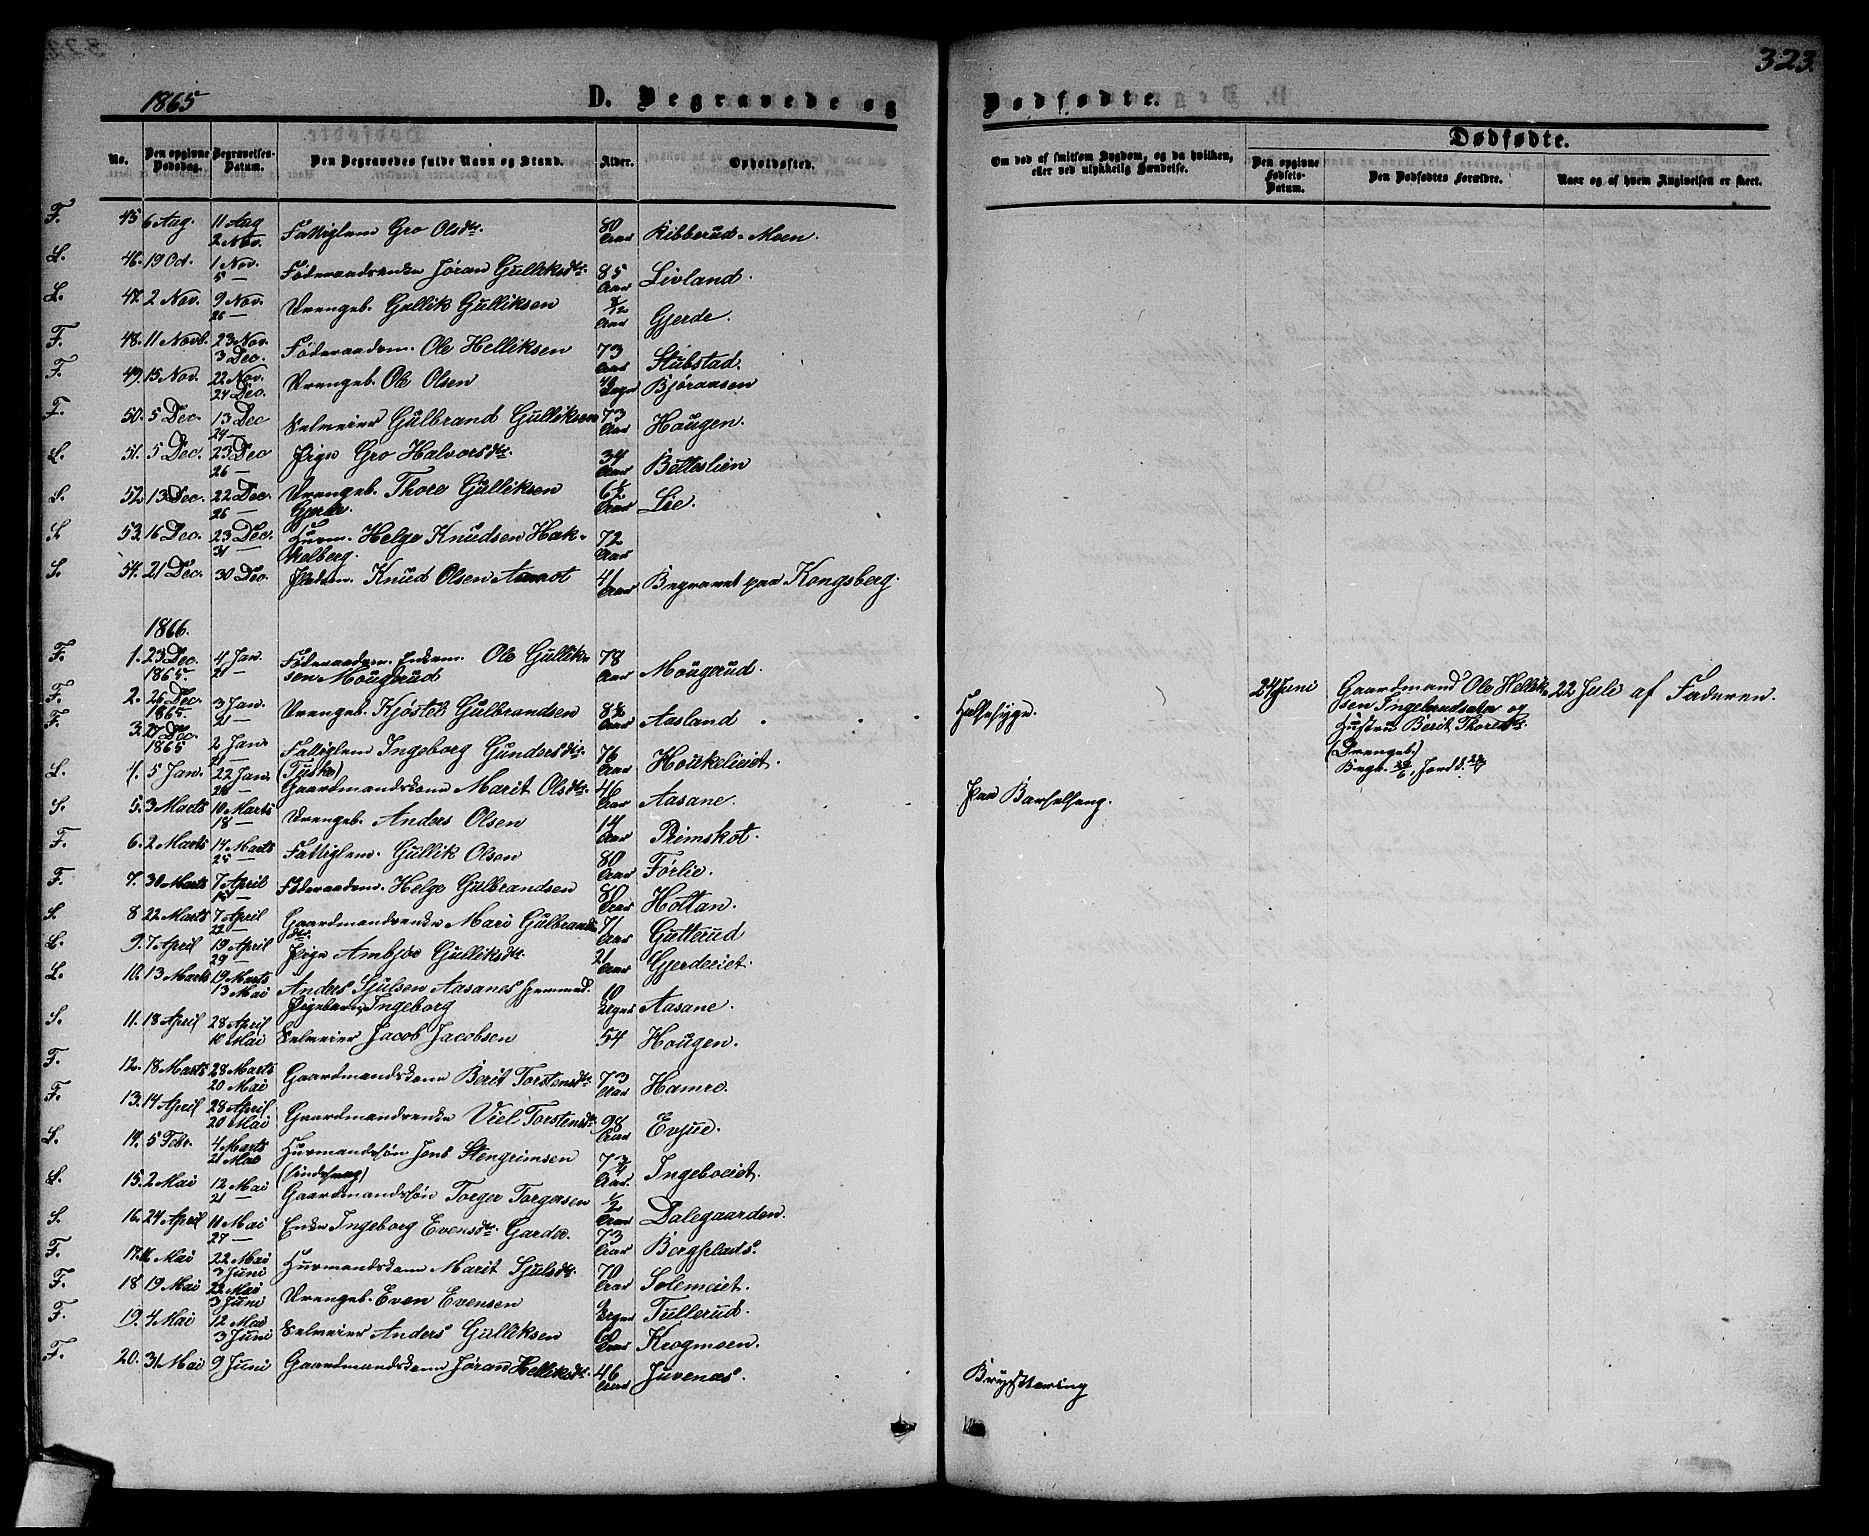 323.
1865
D. Begravede og Dødfødte.
No.
Den opgivne Dødsdag.
Begravelses-Datum.
Den Begravedes fulde Navn og Stand.
Alder.
Opholdssted.
Om død af smitsom Sygdom, og da hvilken, eller ved ulykkelig Hændelse.
Dødfødte.
Den opgivne Fødsels-Datum.
Den Dødfødtes Forældre.
Naar og af hvem Angivelsen er skeet.
F. 45 6 Aug. 11 Aug 2 Nov. Fattiglem Gro Olsdtr. 80 Aar Ribberud-Moen.
L. 46. 19 Oct. 1 Nov. 5 — Føderaadsenke Jøran Gulliksdtr. 85 Aar Livland.
L. 47. 2 Nov. 9 Nov. 26 — Drengeb. Gullik Gulliksen Aar Gjerde.
F. 48. 11 Novb. 23 Nov. 3 Dec. Føderaadsm. Ole Helliksen 73 Aar Stubstad.
F. 49. 15 Nov. 22 Nov. 24 Dec. Drengeb. Ole Olsen Dage Bjøraasen
F. 50. 5 Dec. 13 Dec 24 — Selveier Gulbrand Gulliksen 73 Aar Haugen.
L. 51. 5 Dec. 23 Dec 26 — Pige Gro Halvorsdtr. 34 Aar Betteslien
S. 52 13 Dec. 22 Dec. 26 — Drengeb. Thore Gulliksen Gjerde. 6½ Aar Lie.
S. 53. 16 Dec. 23 Dec. 31 — Huusm. Helge Knudsen Hak-
kelberg. 72 Aar
S. 54. 21 Dec. 30 Dec. Pladsm. Knud Olsen Aamot 41 Aar Begravet paa Kongsberg.
1866.
F. 1. 23 Dec. 1865. 4 Jan. 21 — Føderaadsm. Enkem. Ole Gullik-
sen Mougerud 78 Aar Mougerud.
F. 2. 26 Dec. 1865. 3 Jan. 21 — Drengeb. Kjøstel Gulbrandsen 8½ Aar Aasland Halsesyge.
F. 3. 27 Dec. 1865 2 Jan. 21 — Fattiglem Ingeborg Gundersdtr. (Tuska) 76 Aar Houkelieiet.
L. 4. 5 Jan. 22 Jan. 28 — Gaardmandskone Marit Olsdtr. 46 Aar Aasane. Paa Barselseng.
S. 5. 3 Marts 10 Marts 18 — Drengeb. Anders Olsen 14 Aar Primskot.
F. 6. 2 Marts 14 Marts 25 — Fattiglem. Gullik Olsen 80 Aar Førlie.
F. 7. 30 Marts 7 April — Føderaadsm. Helge Gulbrandsen 80 Aar Holtan.
S. 8 22 Marts 7 April 22 — Gaardmandsenke Mari Gulbrands-
dtr. 71 Aar Gutterud
L. 9. 7 April 19 April 29 — Pige Ambjør Gulliksdtr. 21 Aar Gjerdeeiet.
L. 10. 13 Marts 19 Marts 13 Mai Anders Sjulsen Aasanes hjemmed.
Pigebarn Ingeborg 10 Uger Aasane.
S. 11. 18 April 28 April 10 Mai Selveier Jacob Jacobsen 54 Haugen.
F. 12. 18 Marts 28 Marts 20 Mai Gaardmandskone Berit Torstensdtr. 73 Aar Hamre.
F. 13. 14 April 28 April 20 Mai Gaardmandsenke Viel Torstensdtr. 98 Aar Evjue.
L. 14. 5 Febr. 4 Marts 21 Mai Huusmandssøn Jens Stengrimsen 7¾ Aar. Ingeboeiet.
L. 15. 2 Mai 12 Mai 21 — Gaardmandssøn Torger Torgersen ½ Aar Dalegaarden.
S. 16. 24 April 11 Mai 27 — Enke Ingeborg Evensdtr. Garder. 73 Aar Bergplads.
F. 17. Mai 22 Mai 3 Juni Huusmandskone Marit Sjulsdtr. 70 Aar Solemeiet.
F. 18 19 Mai 22 Mai 3 Juni Drengeb. Even Evensen Uger Tullerud.
F. 19. 4 Mai 12 Mai 3 Juni Selveier Anders Gulliksen 60 Aar Krogmoen.
F. 20. 31 Mai 9 Juni Gaardmandskone Jøran Helliksdtr. 46 Aar Juvenæs. Brystværing
24 Juni
Gaardmand Ole Hellik-
sen Ingebrandsata og
Hustru Berit Thoresdtr.
(Drengeb.)
22 Juli af Faderen.